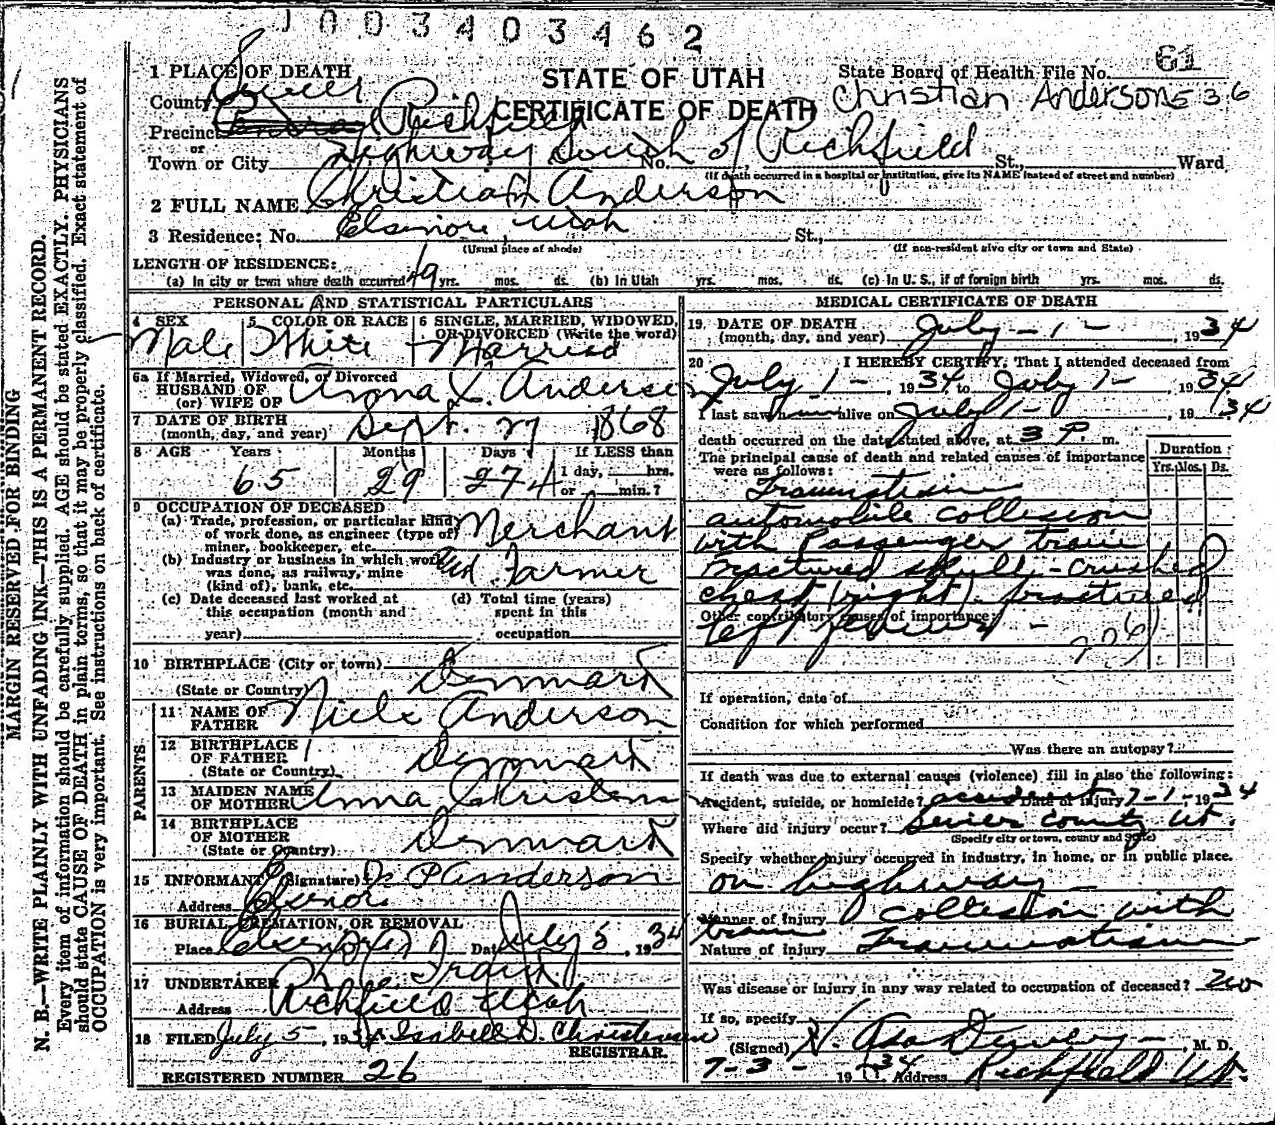 J003403462
61
1 PLACE OF DEATH
STATE OF UTAH
State Board of Health File No.
County Sevier
CERTIFICATE OF DEATH
Christian Anderson
536
Precinct Richfield
or
Town or City Highway South of Richfield No. St., Ward
(If death occurred in a hospital or institution, give its NAME instead of street and number)
2 FULL NAME Christian Anderson
3 Residence: No. Elsinore, Utah St.,
(Usual place of abode) (If non-resident give city or town and State)
LENGTH OF RESIDENCE:
(a) In city or town where death occurred 49 yrs. mos. ds. (b) In Utah yrs. mos. ds. (c) In U. S., if of foreign birth yrs. mos. ds.
PERSONAL AND STATISTICAL PARTICULARS
4 SEX 5 COLOR OR RACE 6 SINGLE, MARRIED, WIDOWED, OR DIVORCED (Write the word)
Male White Married
6a If Married, Widowed, or Divorced
HUSBAND OF
(or) WIFE OF
L. Anderson
7 DATE OF BIRTH
(month, day, and year) Sept. 27 1868
8 AGE Years Months Days If LESS than
65 29 274 1 day, hrs.
or min.?
9 OCCUPATION OF DECEASED
(a) Trade, profession, or particular kind
of work done, as engineer (type of)
miner, bookkeeper, etc.
Merchant
(b) Industry or business in which work
was done, as railway, mine
(kind of), bank, etc.
and Farmer
(c) Date deceased last worked at
this occupation (month and
year)
(d) Total time (years)
spent in this
occupation
10 BIRTHPLACE (City or town)
(State or Country) Denmark
PARENTS
11 NAME OF
FATHER Niels Anderson
12 BIRTHPLACE
OF FATHER
(State or Country) Denmark
13 MAIDEN NAME
OF MOTHER Anna Christensen
14 BIRTHPLACE
OF MOTHER
(State or Country) Denmark
15 INFORMANT (Signature) P Anderson
Address Elsinore
16 BURIAL, CREMATION, OR REMOVAL
Place Elsinore Date July 5, 1934
17 UNDERTAKER
Address Richfield Utah
18 FILED July 5, 1934 Isabell D. Christensen
REGISTRAR.
REGISTERED NUMBER 26
MEDICAL CERTIFICATE OF DEATH
19. DATE OF DEATH
(month, day, and year) July - 1 - , 1934
20 I HEREBY CERTIFY, That I attended deceased from
July 1 - , 1934 to July 1 - , 1934
I last saw him alive on July 1 - , 1934
death occurred on the date stated above, at 3 P. m.
The principal cause of death and related causes of importance
were as follows:
Duration
Yrs. Mos. Ds.
Traumatism
automobile collision
with Passenger train
Fractured skull - crushed
chest (right) - fractured
Other contributory causes of importance:
left femur -
206
If operation, date of
Condition for which performed
Was there an autopsy?
If death was due to external causes (violence) fill in also the following:
Accident, suicide, or homicide? accident Date of injury 7-1-, 1934
Where did injury occur? Sevier County Ut.
(Specify city or town, county and State)
Specify whether injury occurred in industry, in home, or in public place.
on highway
Manner of Injury collision with
train
Nature of Injury Traumatism
Was disease or injury in any way related to occupation of deceased? no
If so, specify
(Signed) , M. D.
7-3- 1934 Address Richfield Ut.
MARGIN RESERVED FOR BINDING
N. B.—WRITE PLAINLY WITH UNFADING INK—THIS IS A PERMANENT RECORD.
Every item of information should be carefully supplied. AGE should be stated EXACTLY. PHYSICIANS
should state CAUSE OF DEATH in plain terms, so that it may be properly classified. Exact statement of
OCCUPATION is very important. See instructions on back of certificate.